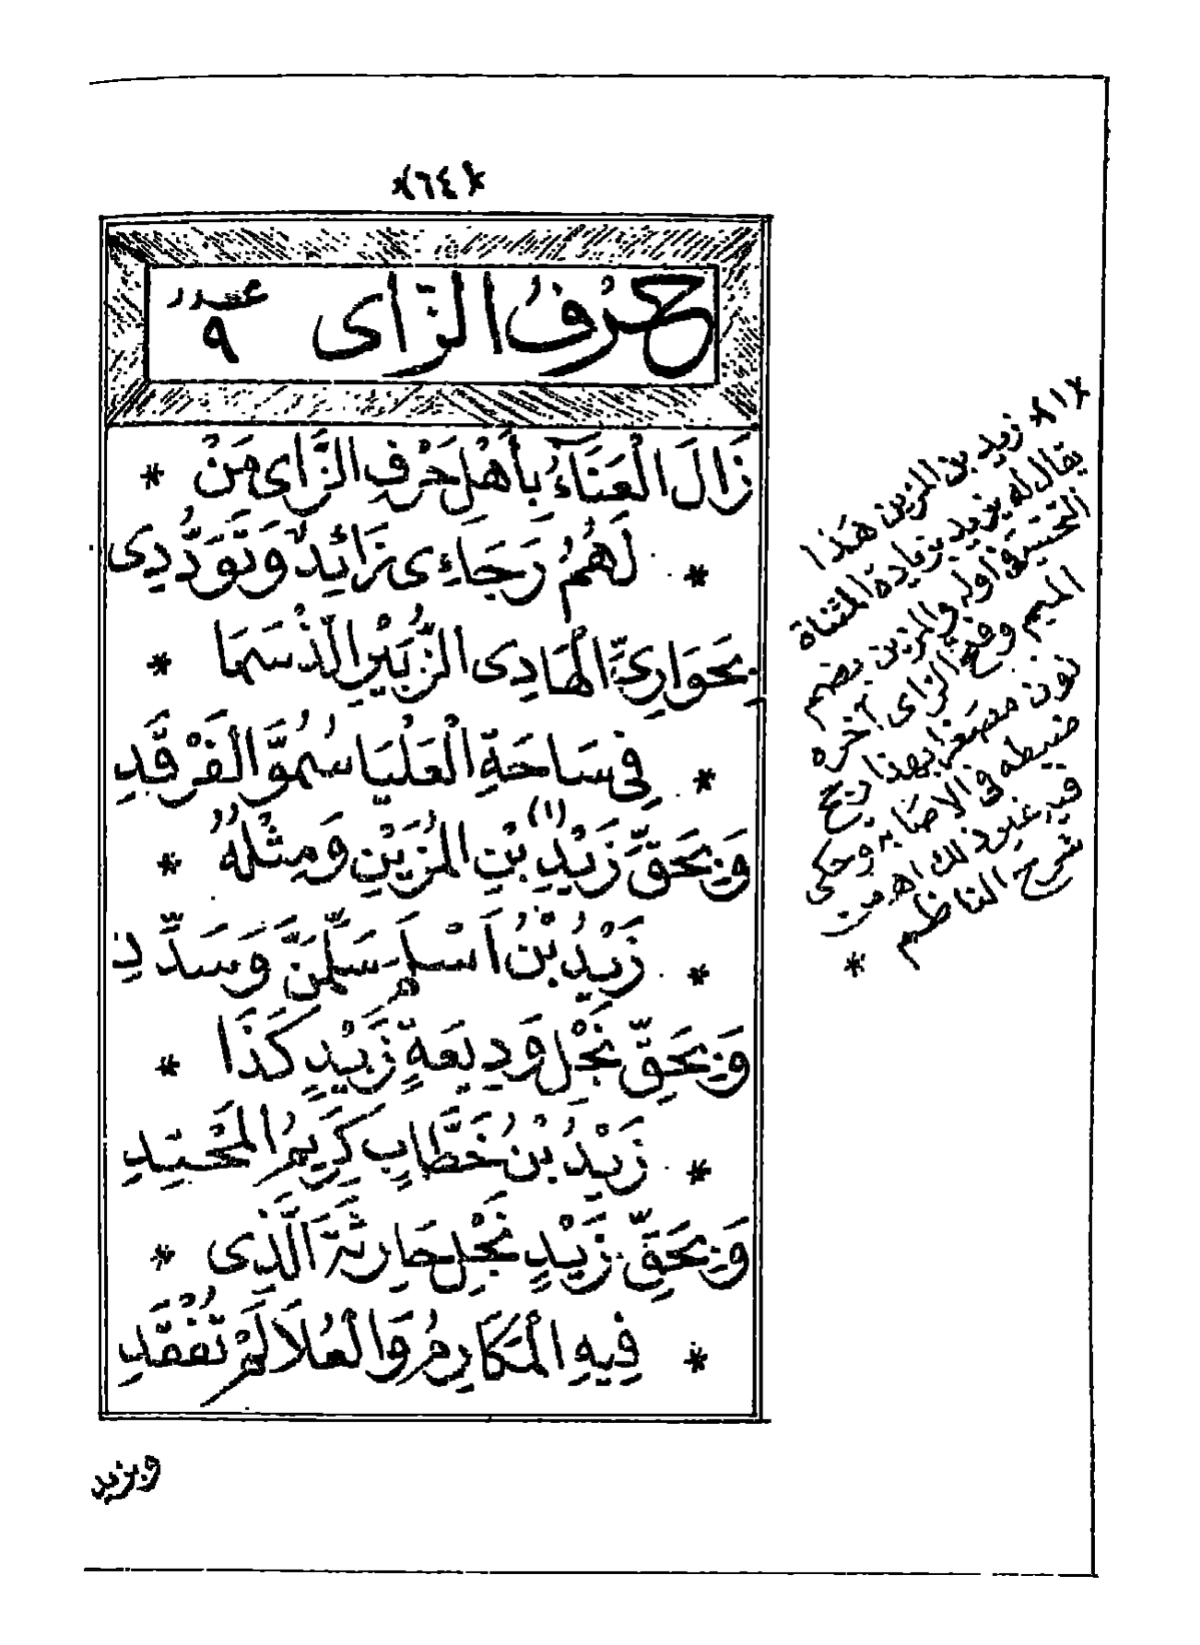 *(٦٤)*
حَرْفُ الزَّاى عدد ٩
زَالَ الْعَنَاءُ بِأَهْلِ حَرْفِ الزَّاىِ مَنْ *
* لَهُمُ رَجَاءِى زَائِدٌ وَتَوَدُّدِى
بِحَوَارِىِّ الْهَادِى الزُّبَيْرِ الَّذْ سَمَا *
* فِى سَاحَةِ الْعَلْيَا سُمُوَّ الْفَرْقَدِ
وَبِحَقِّ زَيْدِ (١) بْنِ الْمُزَيْنِ وَمِثْلُهُ *
* زَيْدُ بْنُ اَسْلَمَ سَلِّمَنَّ وَسَدِّدِ
وَبِحَقِّ نَجْلِ وَدِيعَةٍ زَيْدٍ كَذَا *
* زَيْدُ بْنُ خَطَّابٍ كَرِيمُ الْمَحْتِدِ
وَبِحَقِّ زَيْدٍ نَجْلِ حَارِثَةَ الَّذِى *
* فِيهِ الْمَكَارِمُ وَالْعُلَا لَمْ تُفْقَدِ
وبزيد
*(١)* زيد بن المزين هذا
يقال له يزيد بزيادة المثناة
التحتية فى اوله والمزين بضم
الميم وفتح الزاى آخره
نون مصغرا بهذا رجح
ضبطه فى الاصابه وحكى
فيه غير ذلك اهـ من
شرح الناظم *